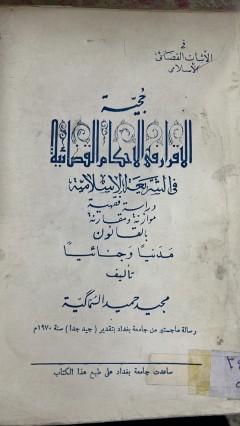 في
الاثبات القضائي
الاسلامي
حجية
الاقرار في الاحكام القضائية
في الشريعة الاسلامية
دراسة فقهية
موازنة ومقارنة
بالقانون
مدنياً وجنائياً
تأليف
مجيد حميد السماكية
رسالة ماجستير من جامعة بغداد بتقدير (جيد جداً) سنة ١٩٧٠م
ساعدت جامعة بغداد على طبع هذا الكتاب